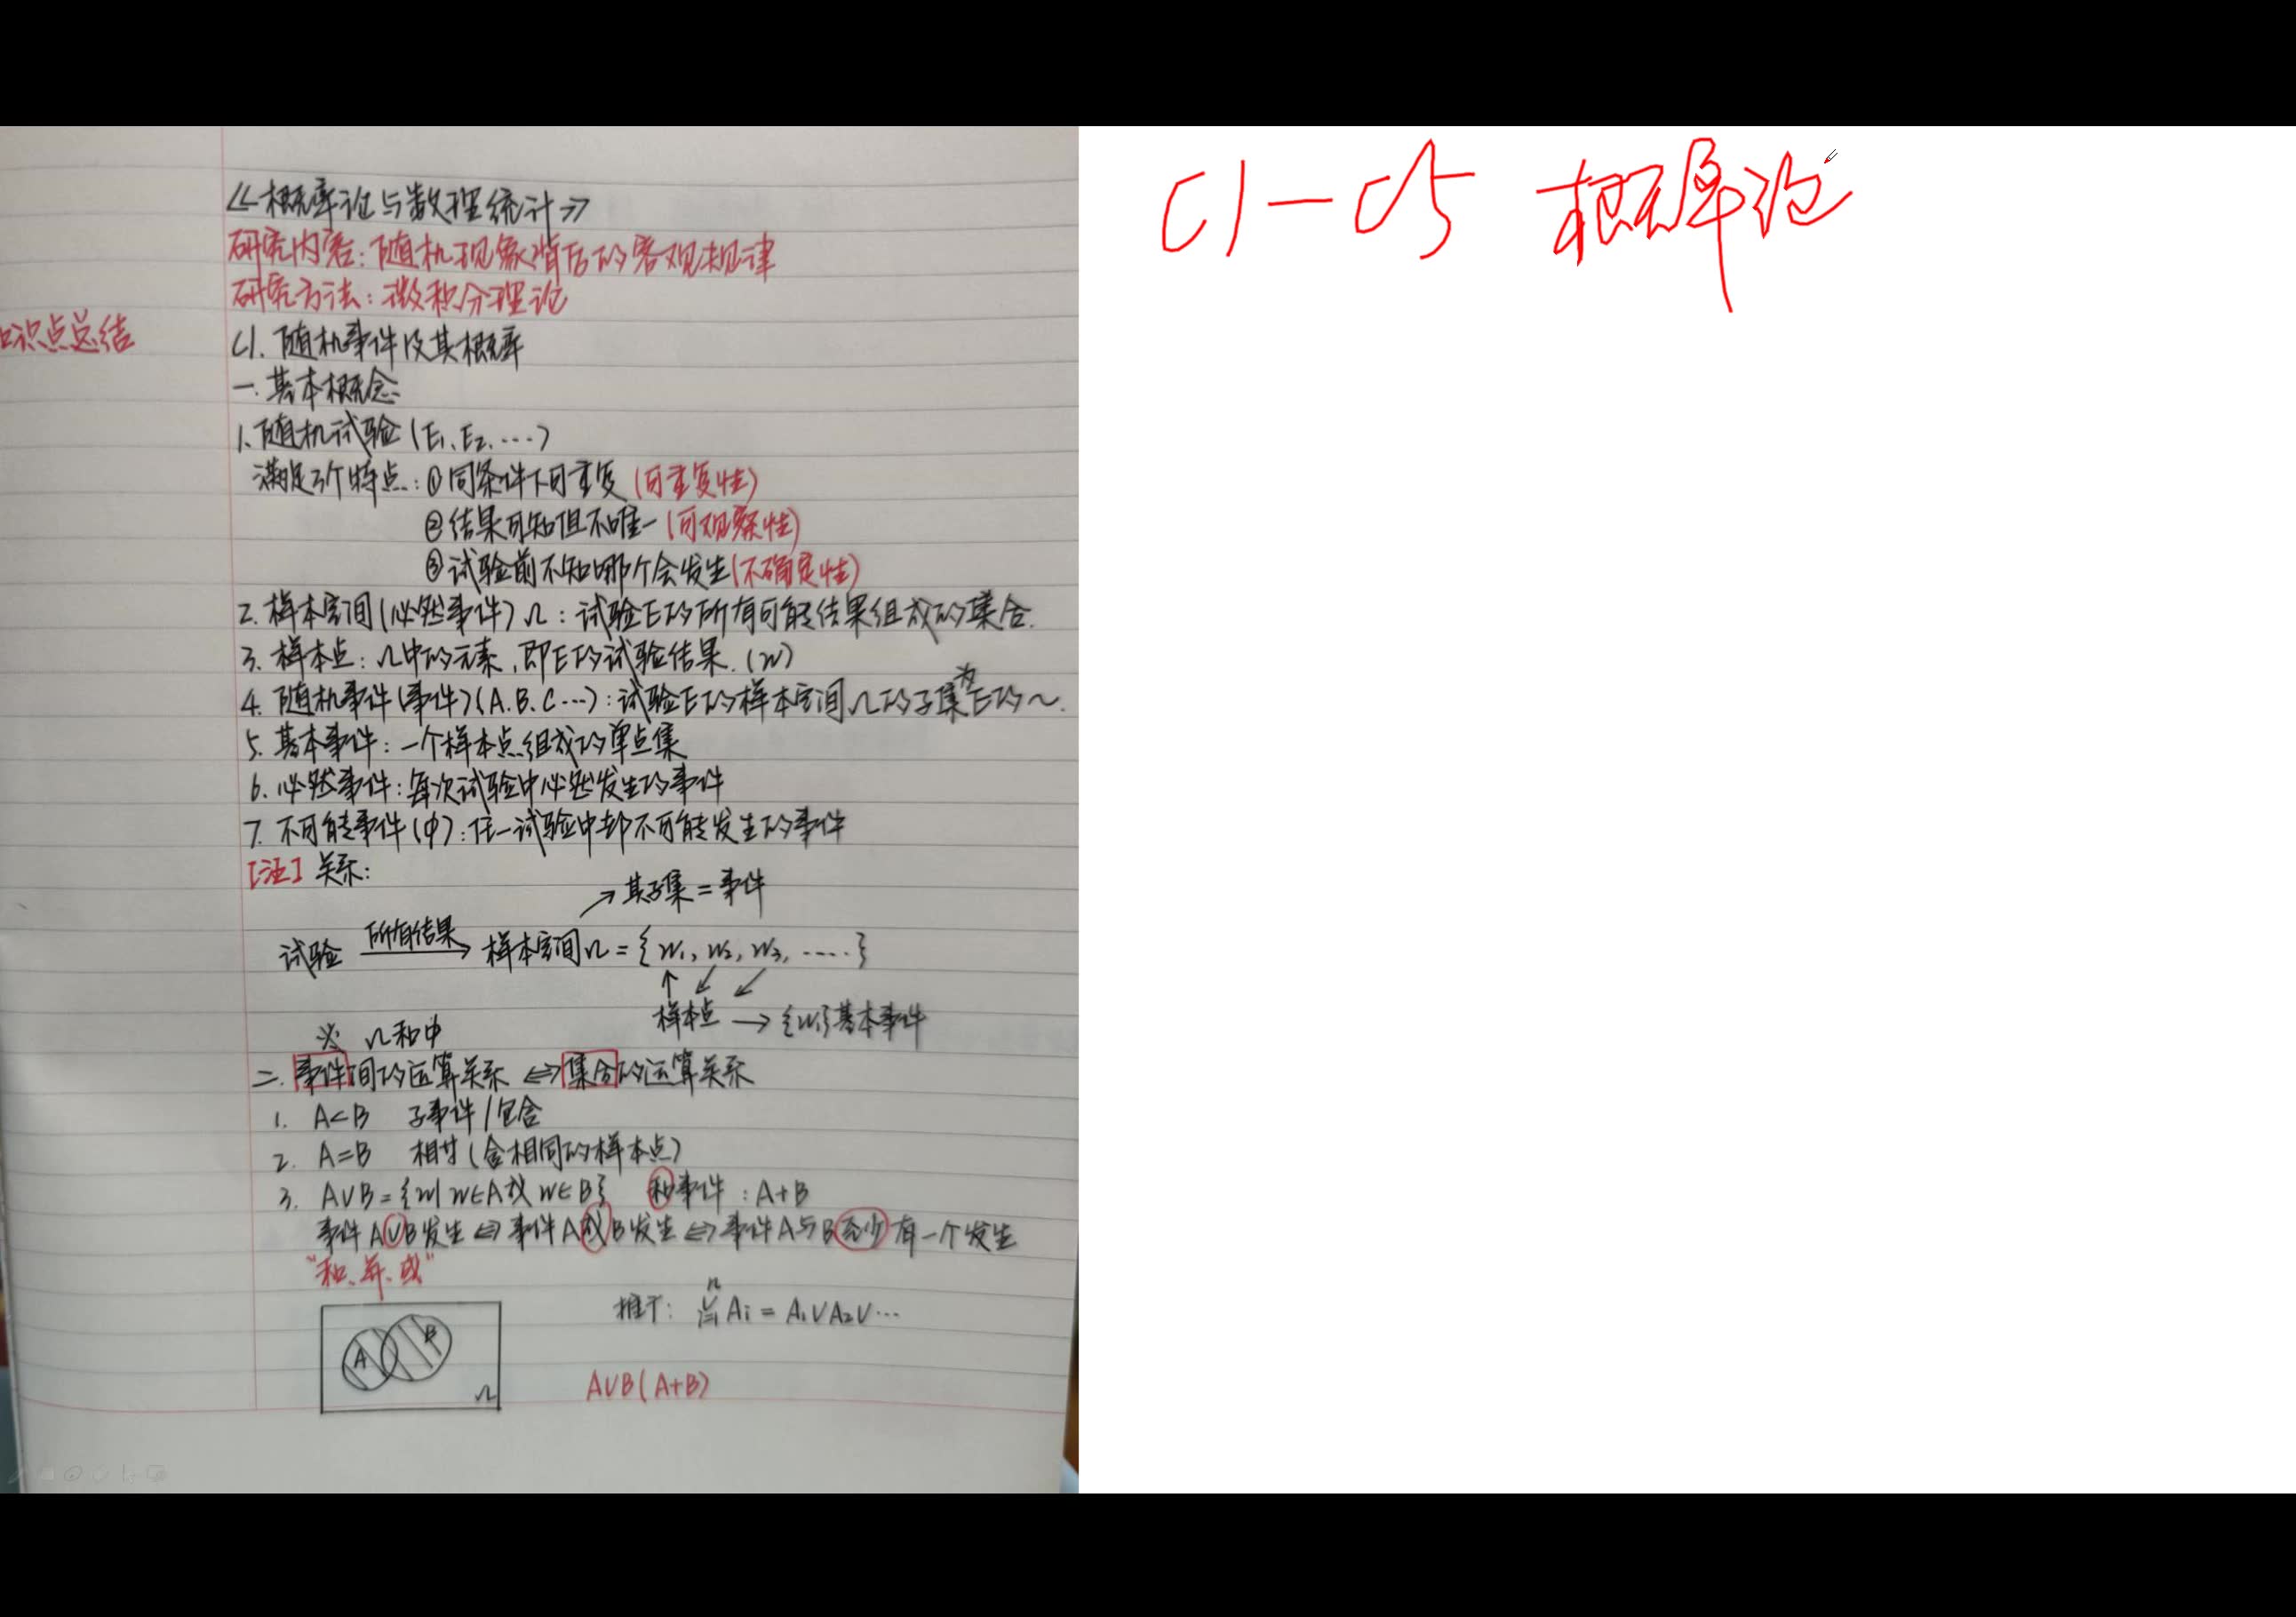 《概率论与数理统计》
研究内容：随机现象背后的客观规律
研究方法：微积分理论
识点总结
C1. 随机事件及其概率
一. 基本概念
1. 随机试验(E₁、E₂、…)
满足3个特点：①同条件下可重复(可重复性)
②结果可知但不唯一(可观察性)
③试验前不知哪个会发生(不确定性)
2. 样本空间(必然事件)Ω：试验E的所有可能结果组成的集合.
3. 样本点：Ω中的元素，即E的试验结果.(w)
4. 随机事件(事件)(A.B.C…)：试验E的样本空间Ω的子集为E的~.
5. 基本事件：一个样本点组成的单点集
6. 必然事件：每次试验中必然发生的事件
7. 不可能事件(φ)：任一试验中都不可能发生的事件
[注] 关系：
↗其子集=事件
试验 所有结果→ 样本空间Ω={w₁, w₂, w₃, ……}
↑ ↙ ↙
样本点 → {wᵢ}基本事件
※ Ω和φ
二. 事件间的运算关系 ⇔ 集合的运算关系
1. A⊂B 子事件/包含
2. A=B 相等(含相同的样本点)
3. A∪B={w|w∈A或w∈B} 和事件：A+B
事件A∪B发生⇔事件A或B发生⇔事件A与B至少有一个发生
"和、并、或"
推广：ⁿ∪ᵢ₌₁ Aᵢ = A₁∪A₂∪…
A B Ω
A∪B(A+B)
C1—C5 概率论